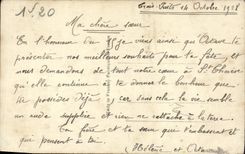 1f20
Trois-Puits 14 Octobre 1918
Ma chère sœur
En l'honneur du je viens ainsi que Octave te
présenter nos meilleurs souhaits pour ta fête et
nous demandons de tout notre cœur à St
qu'elle continue à te donner le bonheur que
tu possèdes déjà car dans cela la vie semble
un rude supplice et rien ne rattache à la terre.
Ton frère et ta sœur qui t'embrassent et
qui pensent à toi
Hélène et Octave